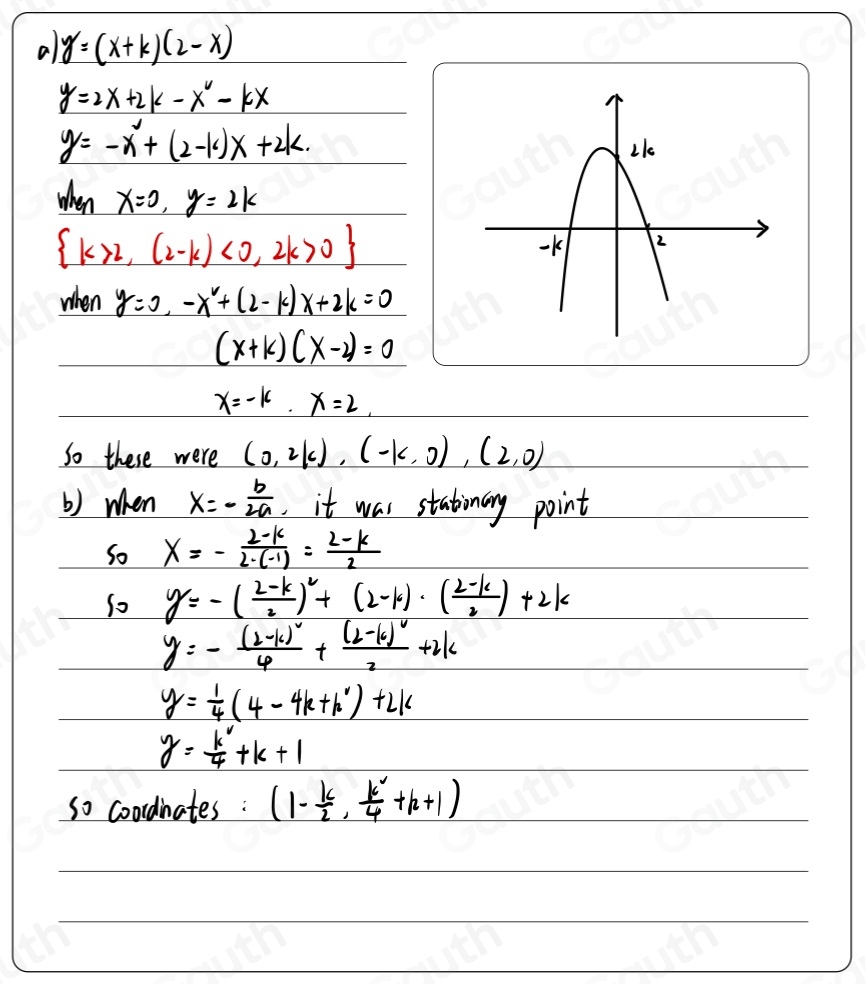 a) y=(x+k)(2-x)
y=2x+2k-x²-kx
y=-x²+(2-k)x+2k.
when x=0, y=2k
{k>2, (2-k)<0, 2k>0}
when y=0, -x²+(2-k)x+2k=0
(x+k)(x-2)=0
x=-k, x=2,
2k
-k
2
so these were (0,2k), (-k,0), (2,0)
b) when x=-b/2a, it was stationary point
so x=-(2-k)/(2·(-1))=(2-k)/2
so y=-((2-k)/2)²+(2-k)·((2-k)/2)+2k
y=-(2-k)²/4+(2-k)²/2+2k
y=1/4(4-4k+k²)+2k
y=k²/4+k+1
so coordinates: (1-k/2, k²/4+k+1)
Gauth